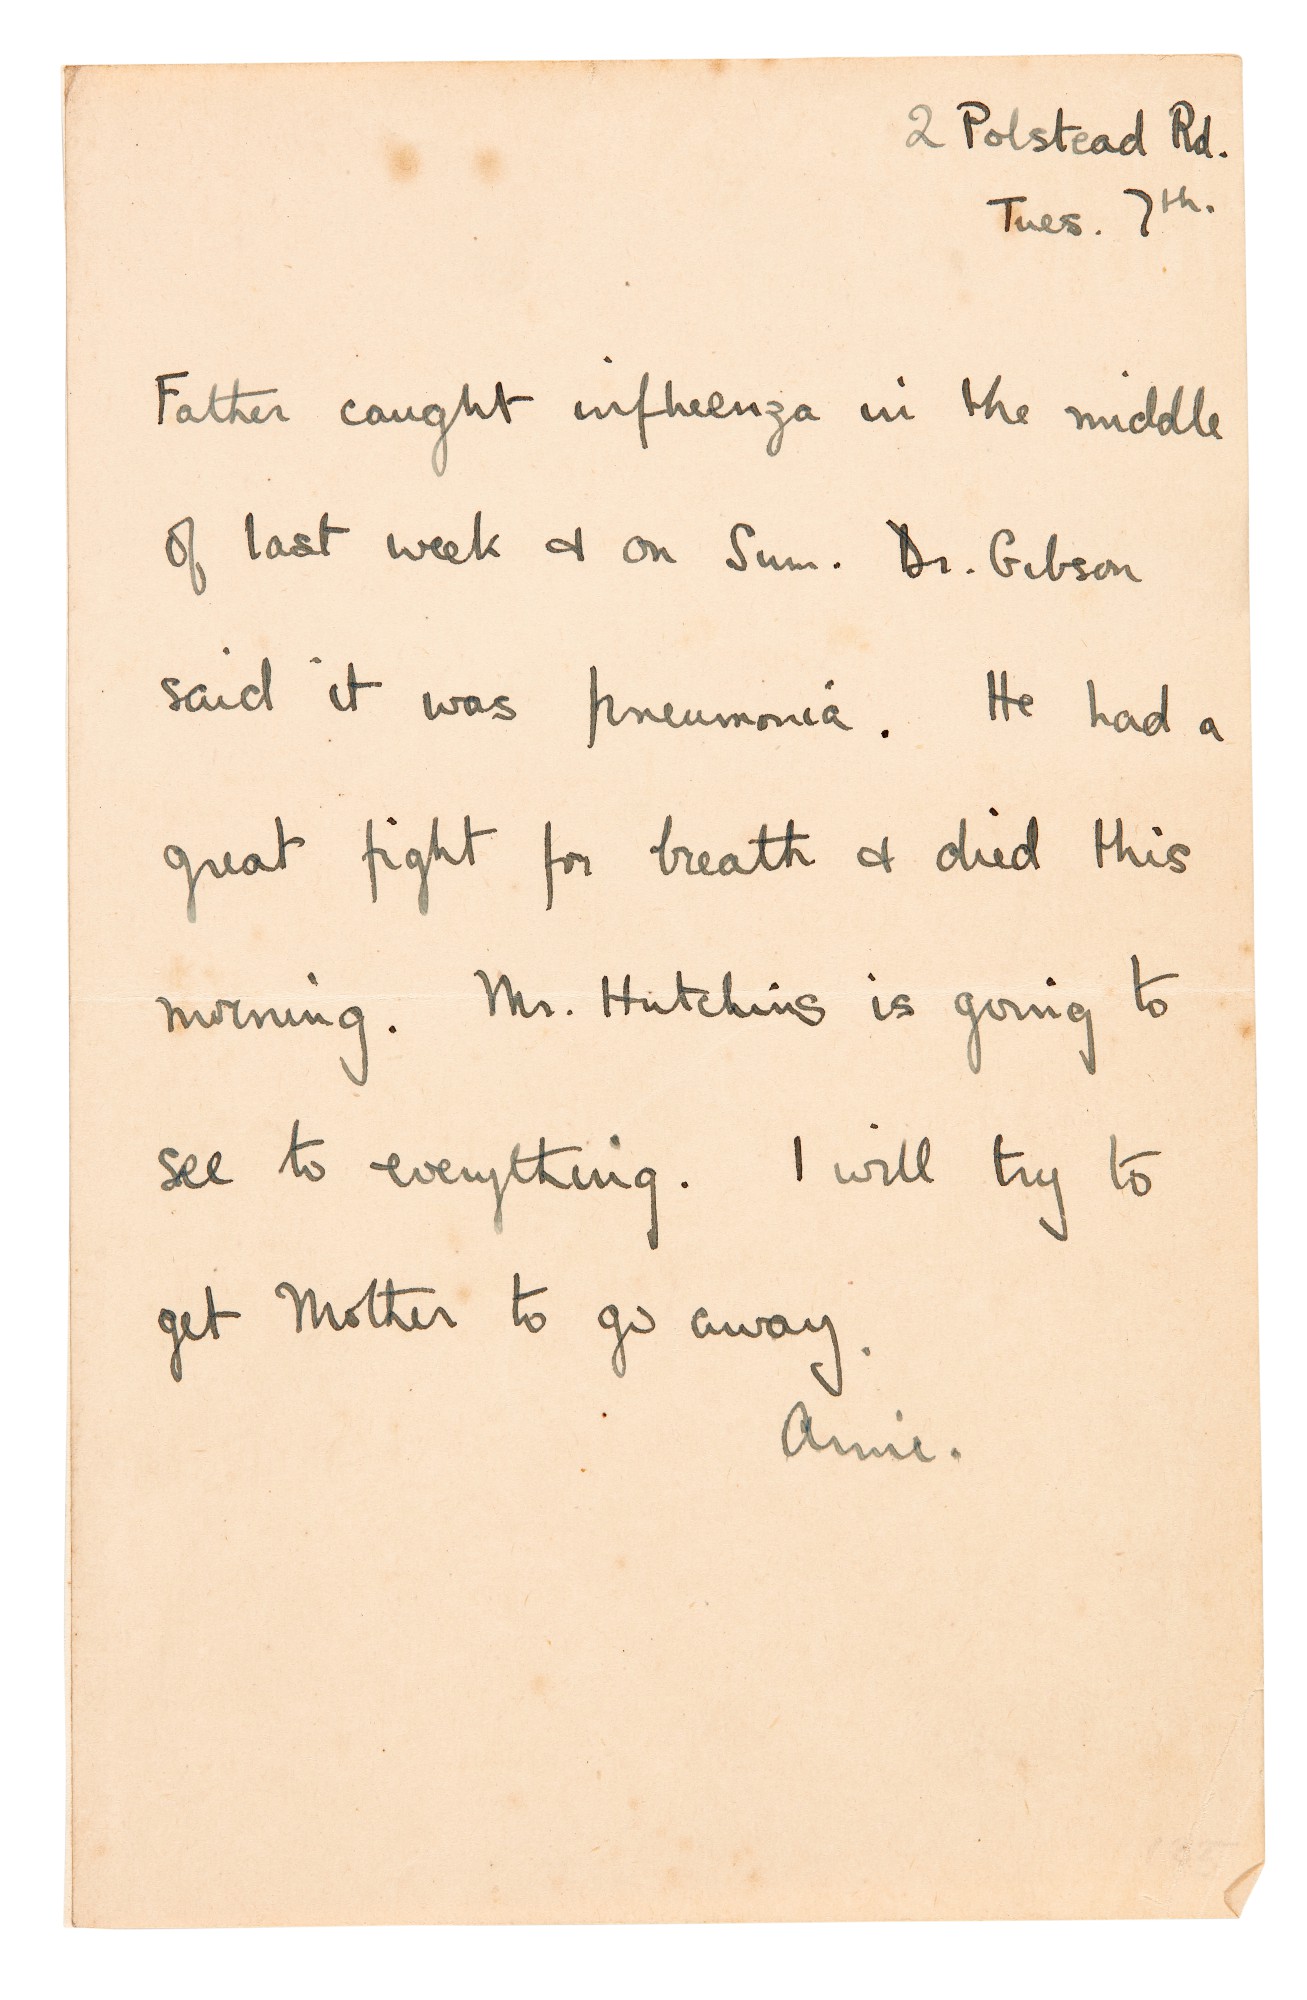 2 Polstead Rd.
Tues. 7th.
Father caught influenza in the middle
of last week & on Sun. Dr. Gibson
said it was pneumonia. He had a
great fight for breath & died this
morning. Mr. Hutchins is going to
see to everything. I will try to
get Mother to go away.
Arnie.